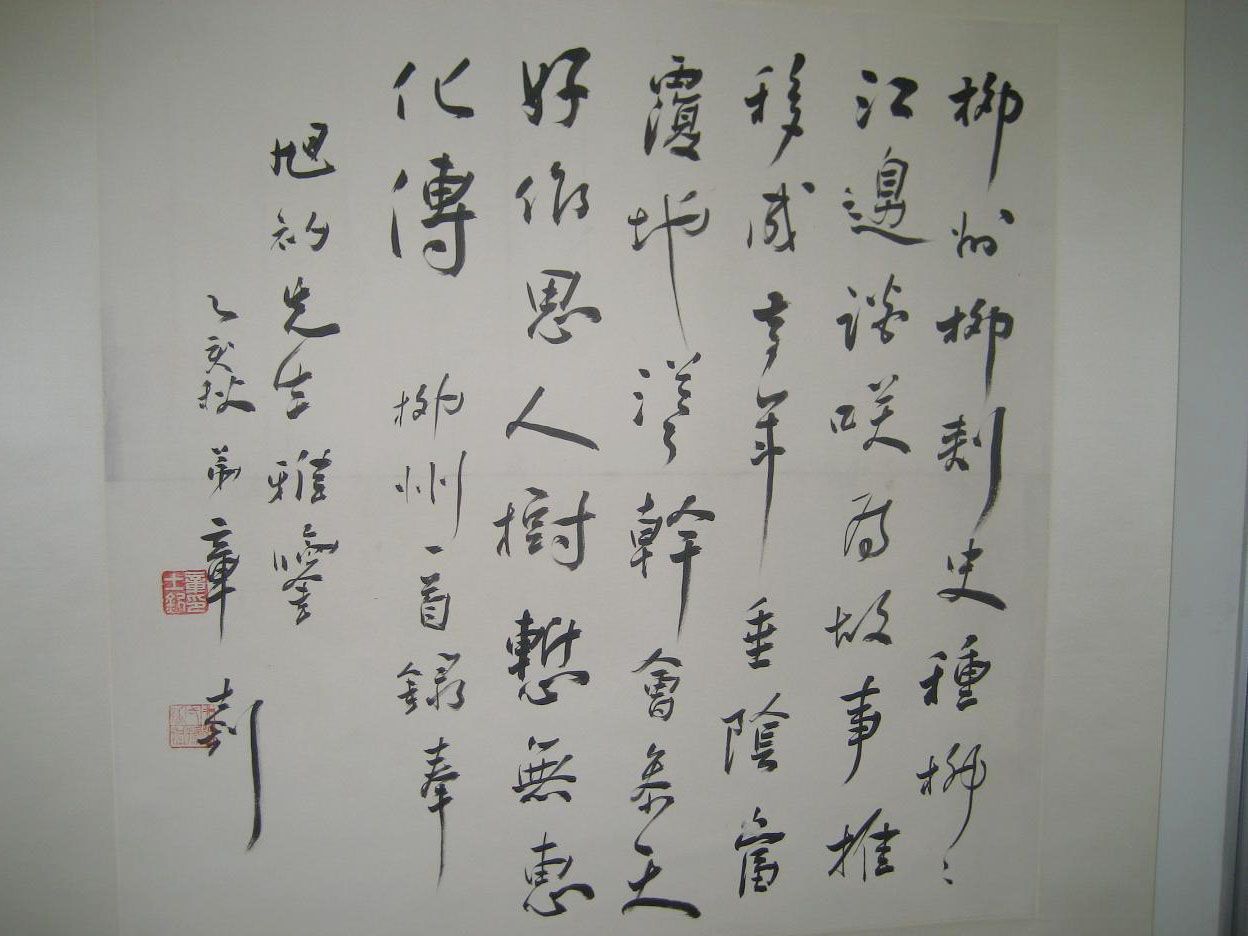 柳州柳刺史種柳〻
江邊談咲為故事推
移成昔年垂陰當
覆地聳幹會參天
好作思人樹慙無惠
化傳 柳州一首錄奉
旭初先生雅鑒
乙亥秋弟章士釗